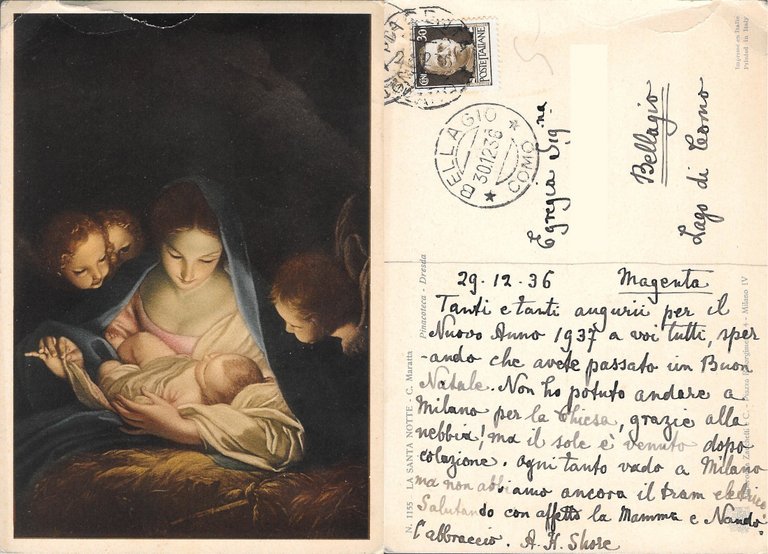 CEN 30
POSTE ITALIANE
BELLAGIO
30.12.36
COMO
Imprimé en Italie
Printed in Italy
Egregia Signa
Bellagio
Lago di Como
N. 1155 LA SANTA NOTTE - C. Maratta
Pinacoteca - Dresda
29-12-36 Magenta
Tanti e tanti augurii per il
Nuovo Anno 1937 a voi tutti, sper
-ando che avete passato un Buon
Natale. Non ho potuto andare a
Milano per la Chiesa, grazie alla
nebbia! ma il sole è venuto dopo
colazione. Ogni tanto vado a Milano
ma non abbiamo ancora il tram elettrico
Salutando con affetto la Mamma e Nando
l'abbraccio. A. H. Shore
- Milano IV